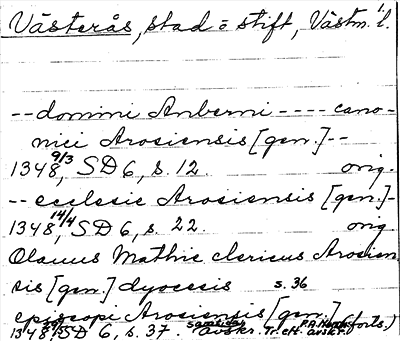 Västerås, stad o stift, Västm. l.
-- domini Anberni ---- cano-
nici Arosiensis [gen.] --
1348 9/3, SD 6, s. 12. orig.
-- ecclesie Arosiensis [gen.] -
1348 14/4, SD 6, s. 22. orig
Olauus Mathie clericus Arosien
sis [gen.] dyocesis s. 36
episcopi Arosiensis [gen.] (forts.)
1348, SD 6, s. 37. samtida avskr. Tr. eft. avskr.